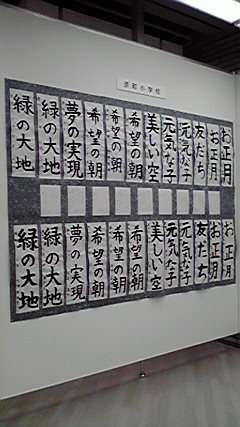 小学校
お正月
お正月
友だち
元気な子
元気な子
美しい空
希望の朝
希望の朝
夢の実現
緑の大地
緑の大地
お正月
お正月
友だち
元気な子
元気な子
美しい空
希望の朝
希望の朝
夢の実現
緑の大地
緑の大地